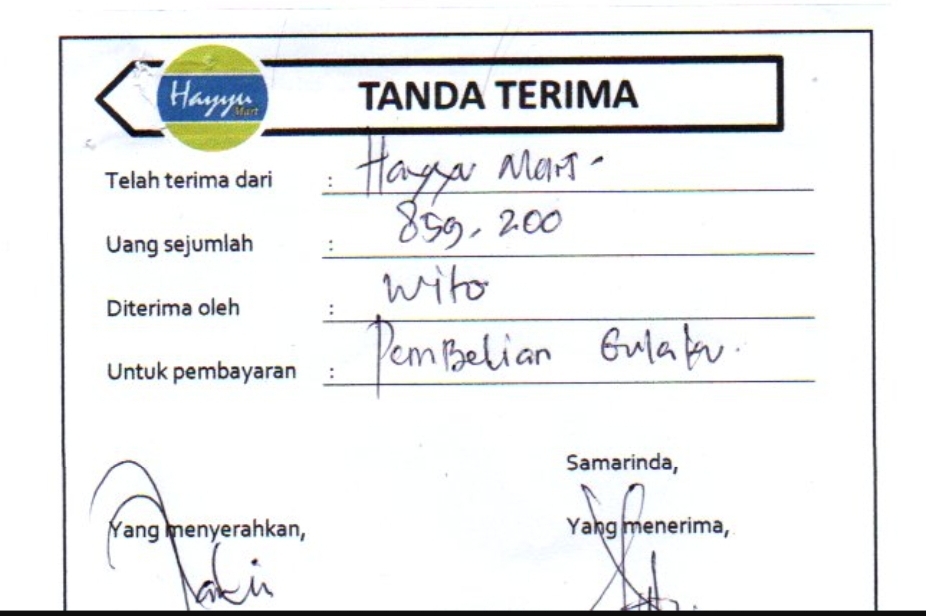 Hayyu Mart
TANDA TERIMA
Telah terima dari : Hayyu Mart -
Uang sejumlah : 859.200
Diterima oleh : Wito
Untuk pembayaran : Pembelian Gulaku.
Samarinda,
Yang menyerahkan, Yang menerima,